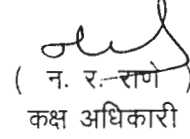 ( न. र. राणे )
कक्ष अधिकारी